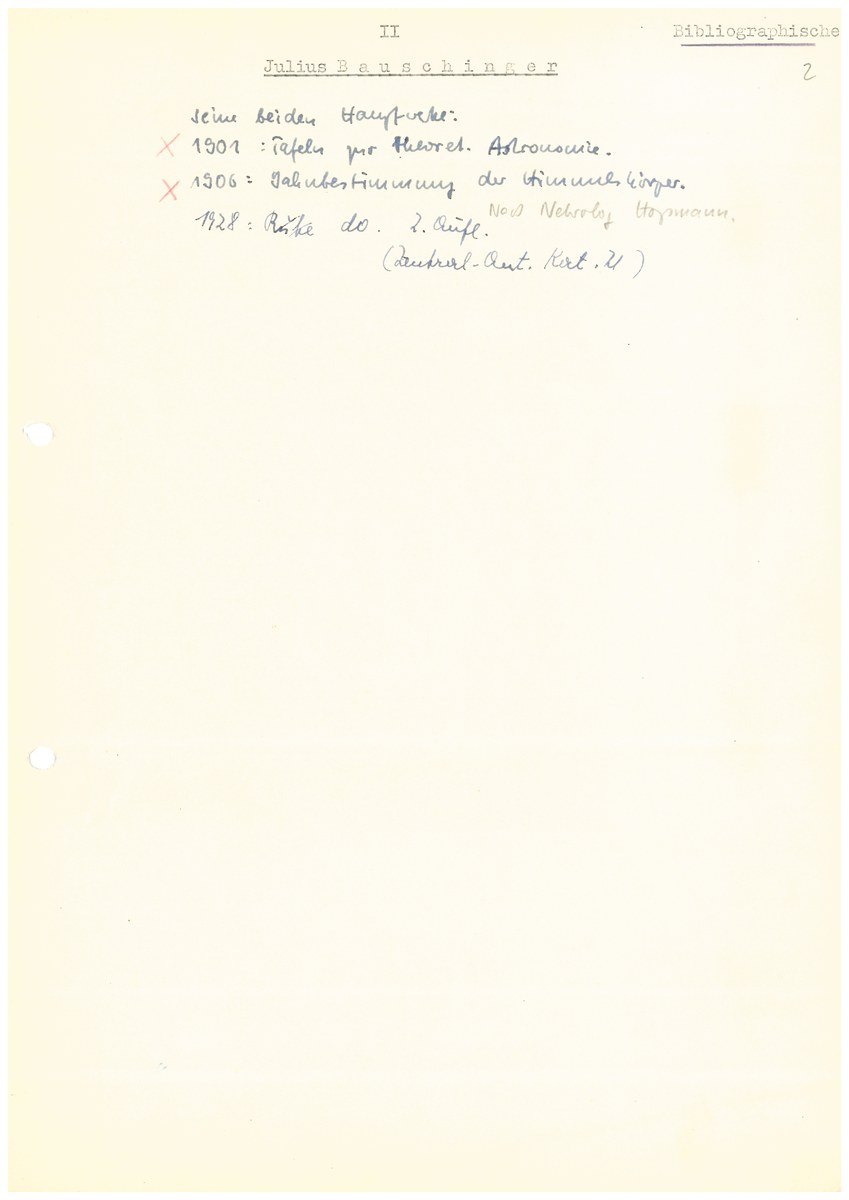 II
Bibliographische
Julius Bauschinger
2
seine beiden Hauptwerke:
X 1901 : Tafeln zur theoret. Astronomie.
X 1906 : Bahnbestimmung der Himmelskörper.
Nach Nekrolog Hopmann.
1928 : do. 2. Aufl.
(Zentral-Ant. Kat. 21)